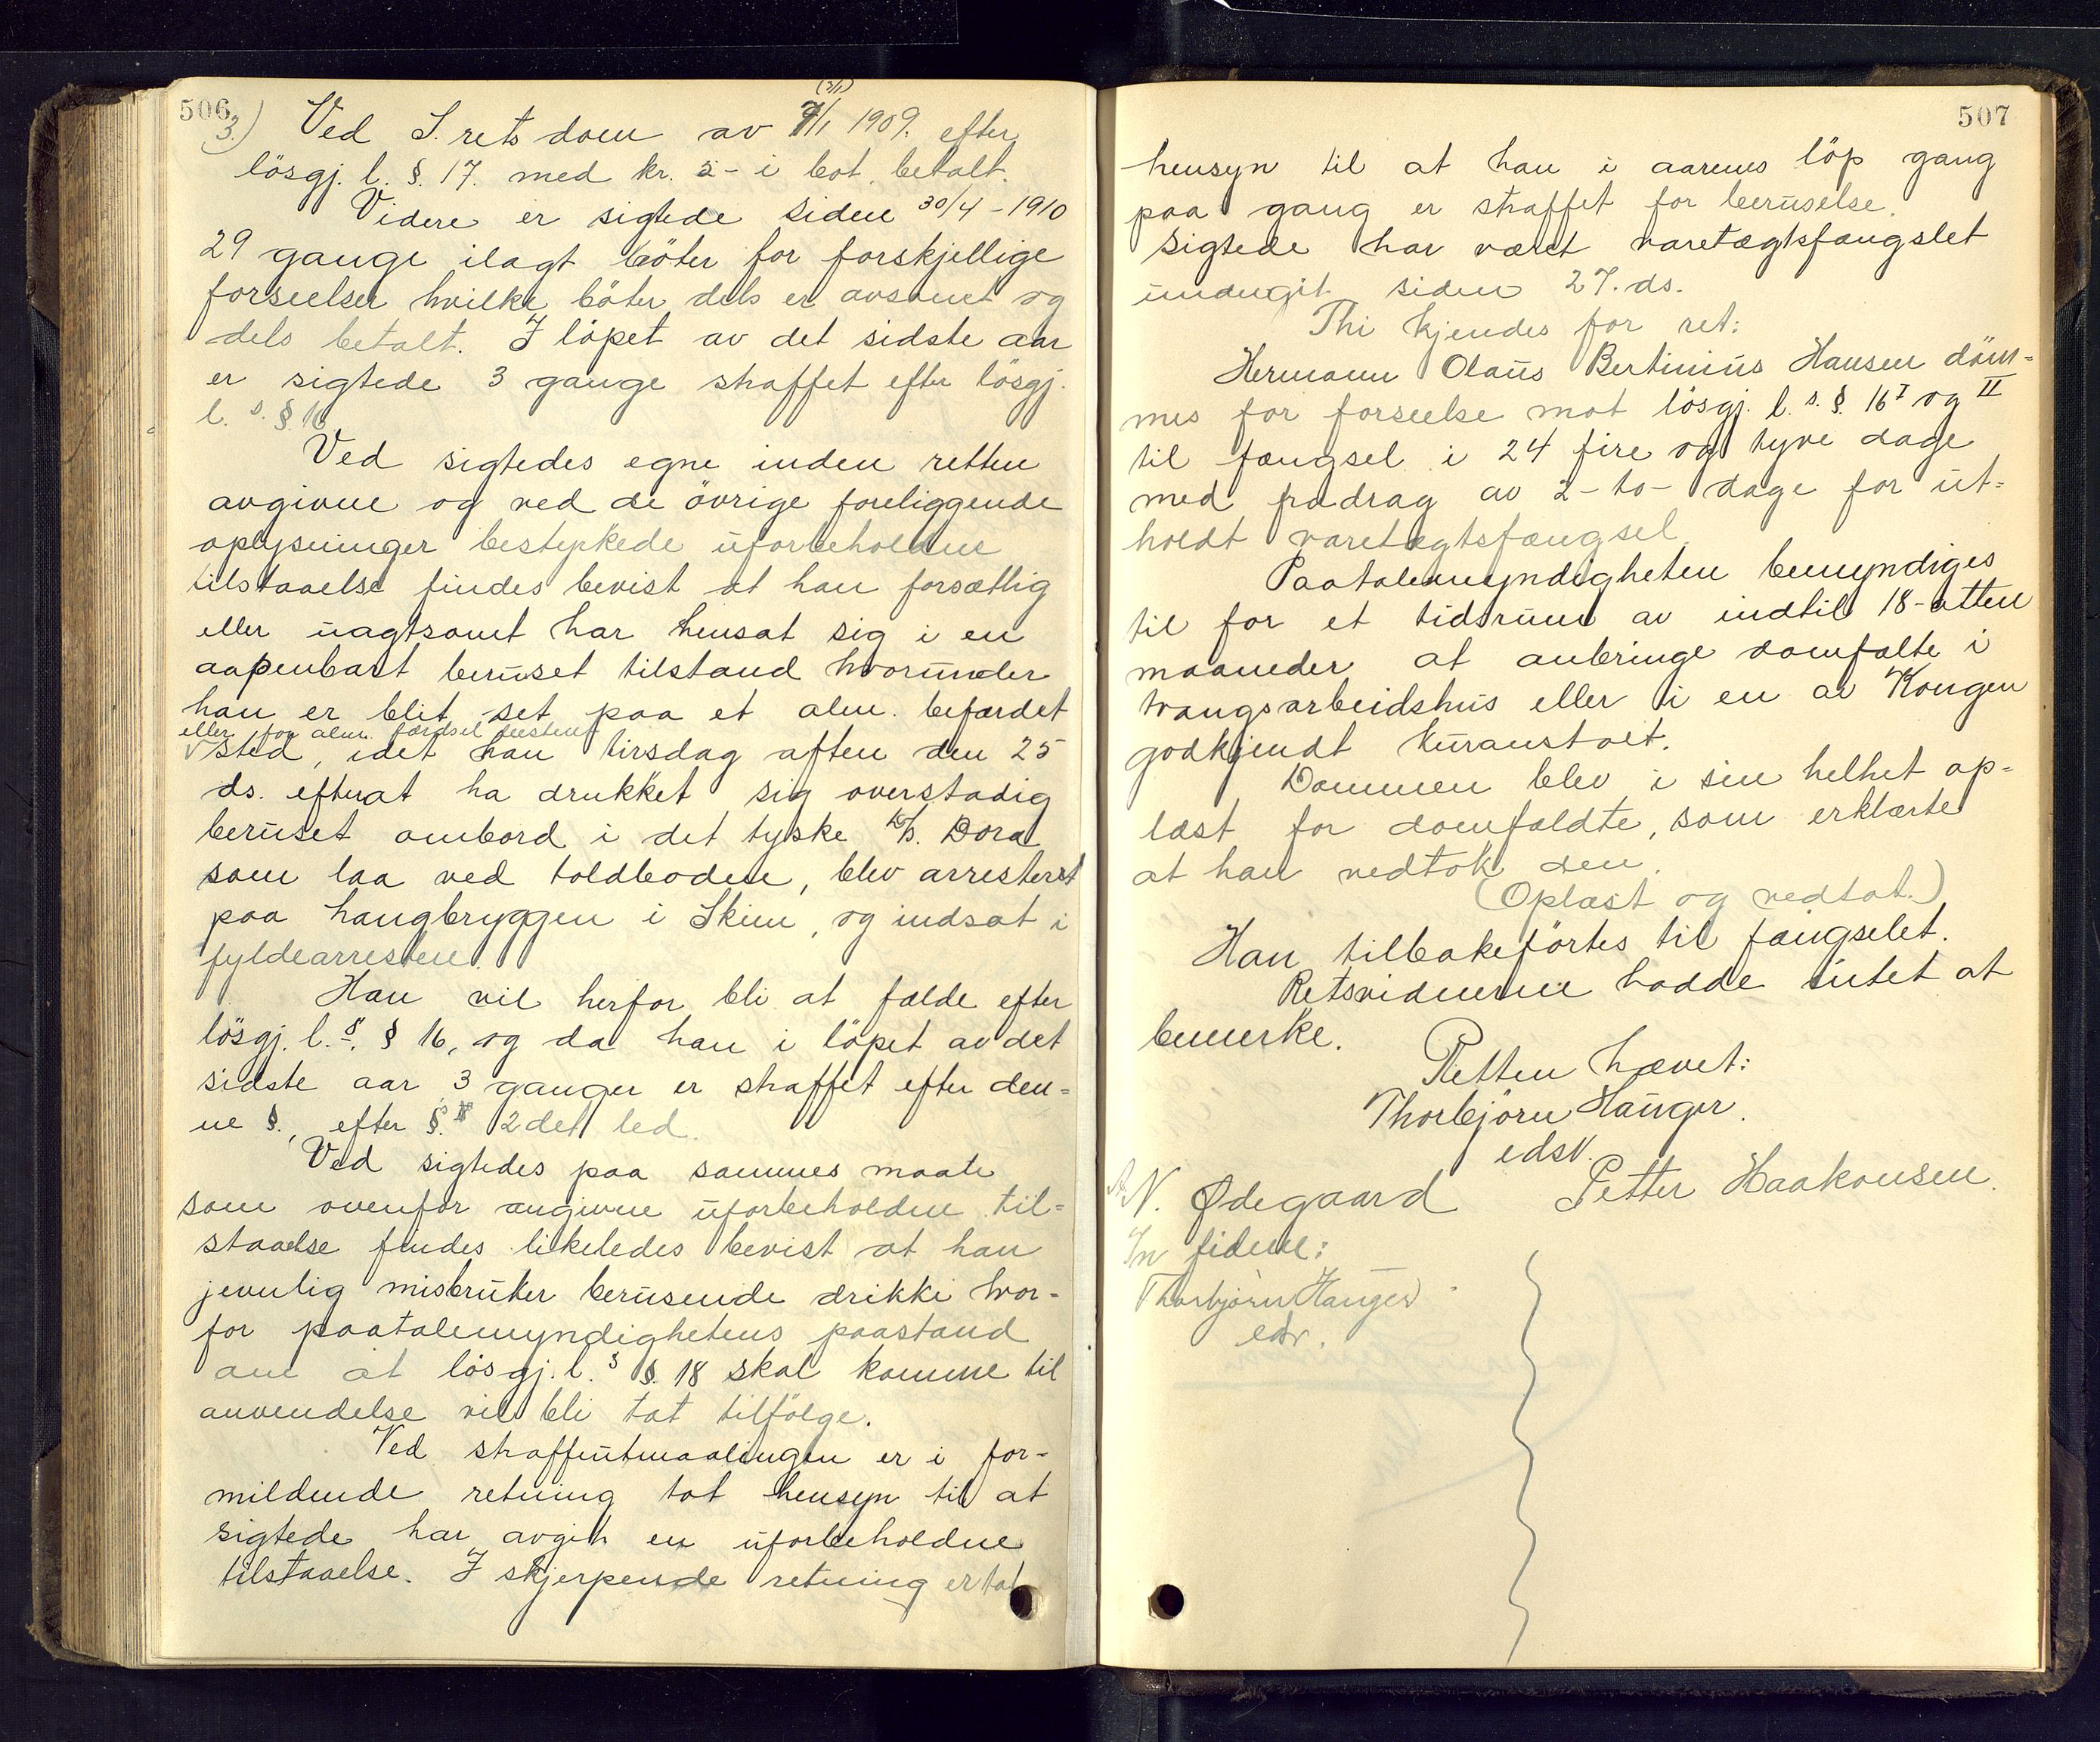 506
3.) Ved S. rets dom av 9/1 (3/1) 1909. efter
lösgj. l. §. 17. med kr. 5- i bot. betalt.
Videre er sigtede siden 30/4 - 1910
29 gange ilagt böter for forskjellige
forseelser hvilke böter dels er avsonet og
dels betalt. I löpet av det sidste aar
er sigtede 3 gange straffet efter lösgj.
l.s. §. 16.
Ved sigtedes egne inden retten
avgivne og ved de övrige foreliggende
oplysninger bestyrkede uforbeholdne
tilstaaelse findes bevist at han forsætlig
eller uagtsomt har hensat sig i en
aapenbart beruset tilstand hvorunder
han er blit set paa et alm. befærdet
eller for alm. færdsel bestemt
√ sted, idet han tirsdag aften den 25
ds. efterat ha drukket sig overstadig
beruset ombord i det tyske D/S. Dora
som laa ved toldboden, blev arrestert
paa haugbryggen i Skien, og indsat i
fyldearresten.
Han vil herfor bli at fælde efter
lösgj. l.s. § 16, og da han i löpet av det
sidste aar 3 ganger er straffet efter den=
ne §., efter §.s 2det led.
Ved sigtedes paa sammes maate
som ovenfor avgivne uforbeholdne til=
staaelse findes likeledes bevist at han
jevnlig misbruker berusende drikke hvor-
for paatalemyndighetens paastand
om at lösgj. l.s §. 18 skal komme til
anvendelse vil bli tat tilfölge.
Ved straffeutmaalingen er i for-
mildende retning tat hensyn til at
sigtede har avgit en uforbeholdne
tilstaaelse. I skjerpende retning er tat
507
hensyn til at han i aarenes löp gang
paa gang er straffet for beruselse.
Sigtede har været varetægtsfængslet
undergit siden 27. ds.
Thi kjendes for ret:
Hermann Olaus Bertinius Hansen döm=
mes for forseelse mot lösgj. l.s. §. 16 I og II
til fængsel i 24 fire og tyve dage
med fradrag av 2-to- dage for ut=
holdt varetægtsfængsel.
Paatalemyndigheten bemyndiges
til for et tidsrum av indtil 18-atten
maaneder at anbringe domfælte i
tvangsarbeidshus eller i en av Kongen
godkjendt kuranstalt.
Dommen blev i sin helhet op=
læst for domfældte, som erklærte
at han vedtok den.
(Oplæst og vedtat.)
Han tilbakeførtes til fængselet.
Retsvidnerne hadde intet at
bemerke.
Retten hævet:
Thorbjörn Hauger.
edsv.
N. Ødegaard Petter Haakonsen.
In fidem:
Thorbjörn Hauger
edv.